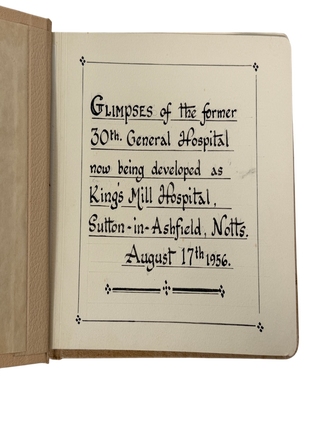 GLIMPSES of the former
30th. General Hospital
now being developed as
King's Mill Hospital,
Sutton-in-Ashfield, Notts.
August 17th 1956.